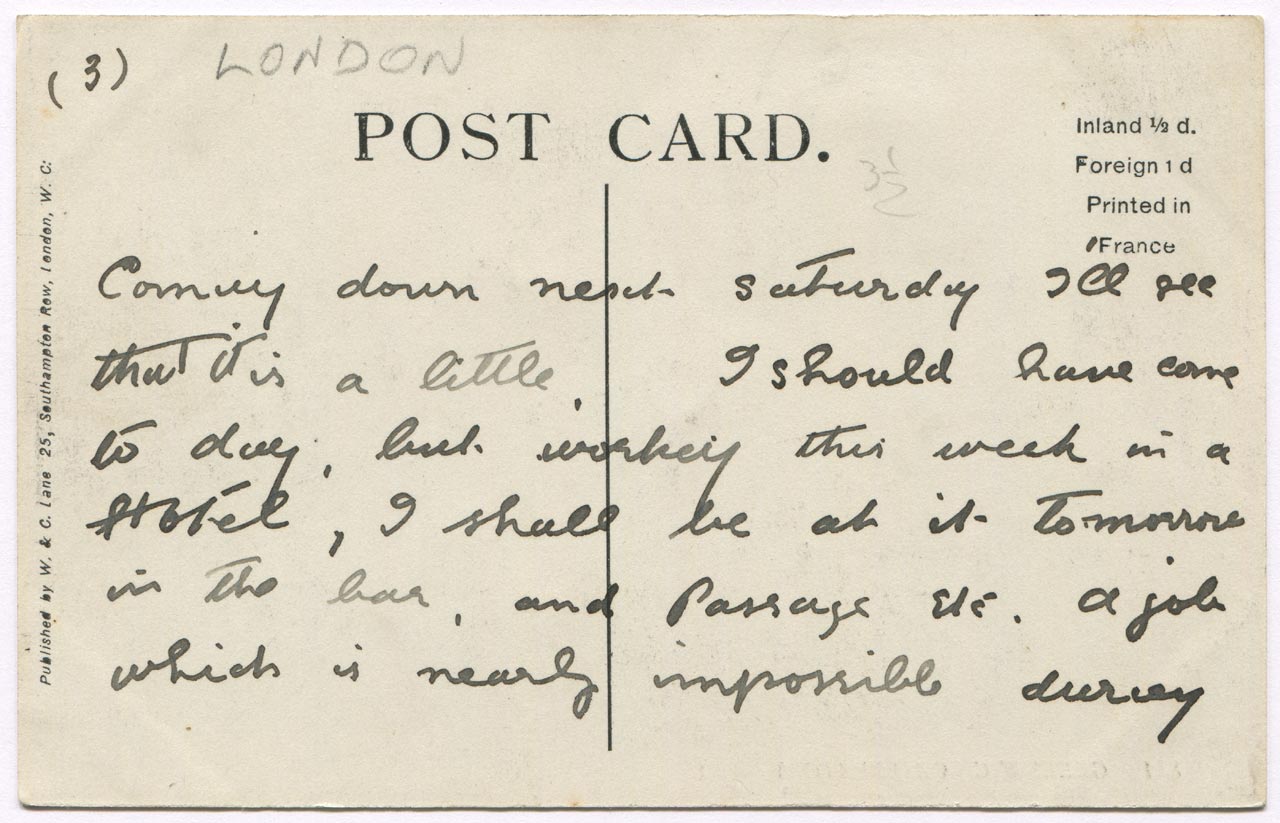 (3)
LONDON
POST CARD.
3½
Inland ½ d.
Foreign 1 d
Printed in
France
Published by W. & C. Lane 25, Southampton Row, London, W. C.
Coming down next saturday I'll see
that it is a little, I should have come
to day, but working this week in a
Hotel, I shall be at it tomorrow
in the bar, and Passage etc. a job
which is nearly impossible during